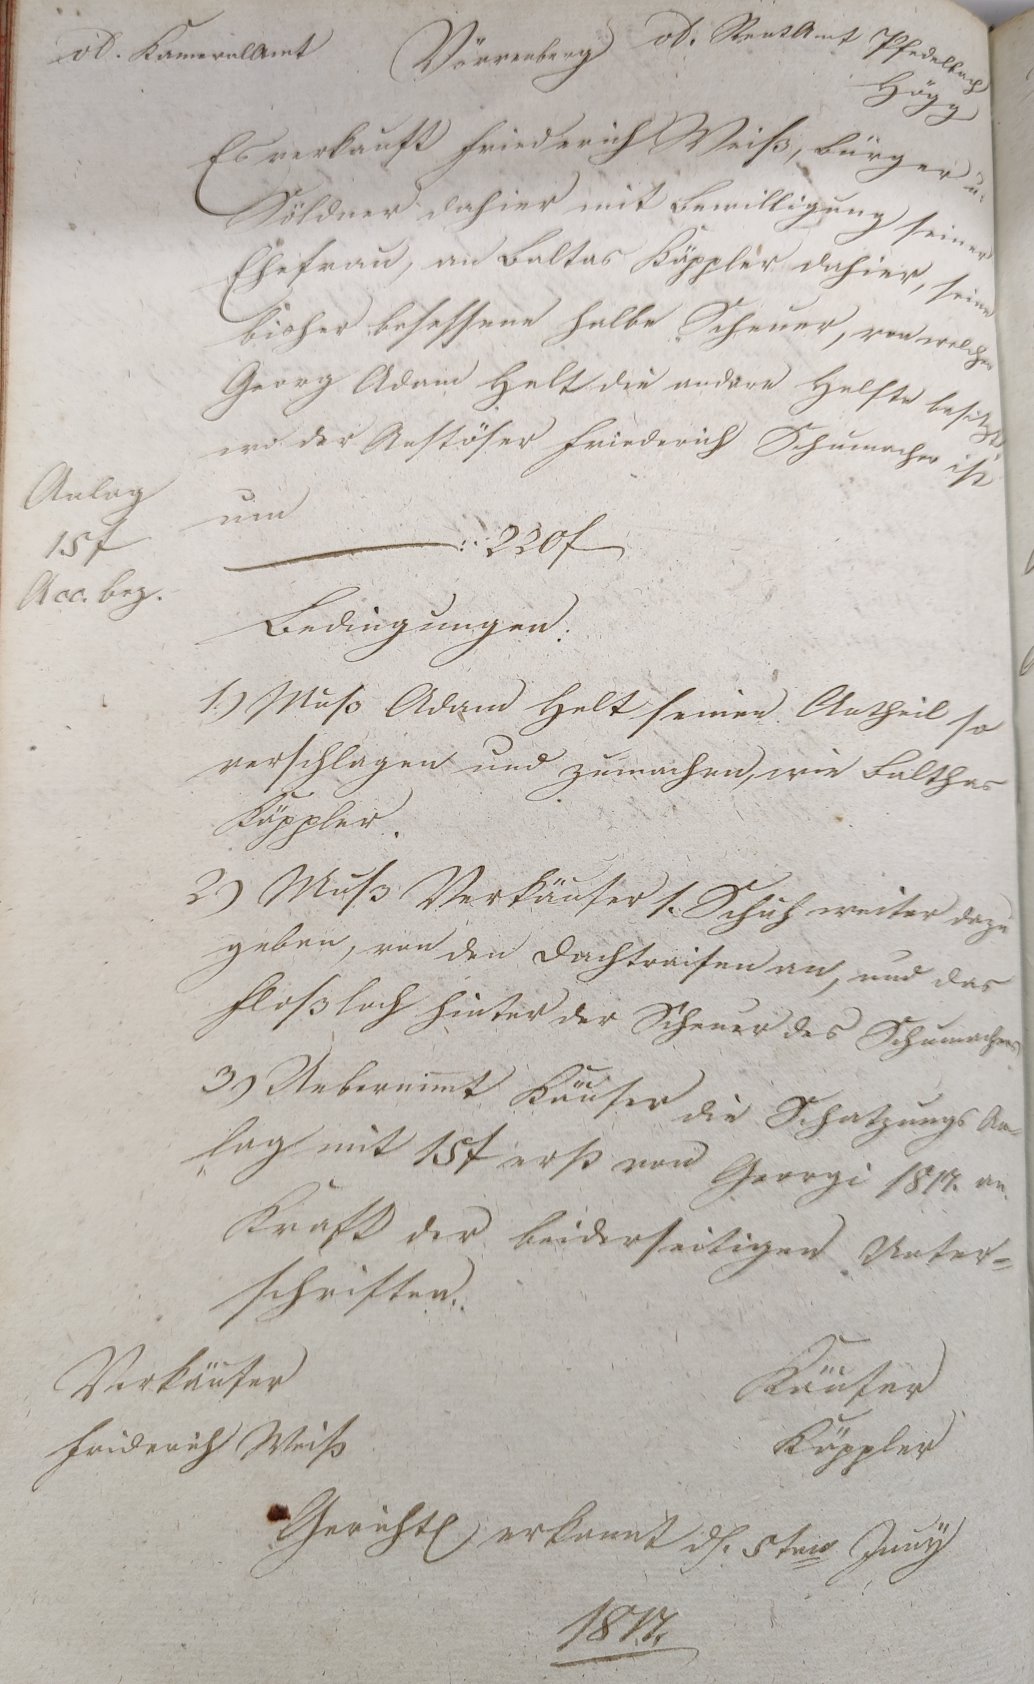 od. KameralAmt Vörrenberg od. RentAmt Pfedelbach
Högg
Es verkauft Friederich Weiß, Bürger u.
Söldner dahier mit Bewilligung seiner
Ehefrau, an Baltas Käppler dahier, seine
bisher besessene halbe Scheuer, von welcher
Georg Adam Helt die andere Helfte besitzt
wo der Anstöser Friederich Schumacher ist
um
220f
Anlag
15f
Acc. bez.
Bedingungen:
1.) Muß Adam Helt seinen Antheil so
verschlagen und zumachen, wie Balthas
Käppler.
2.) Muß Verkäufer 1. Schuh weiter dazu
geben, von den Dachtraifen an, und das
Floßloch hinter der Scheuer des Schumachers
3.) Uebernimmt Käufer die Schatzungs An-
lag mit 15f erst von Georgi 1817. an.
Kraft der beiderseitigen Unter-
schriften.
Verkäufer Käufer
Friderich Weiß Käppler
Gerichtl. erkannt d. 5ten Juny
1817.